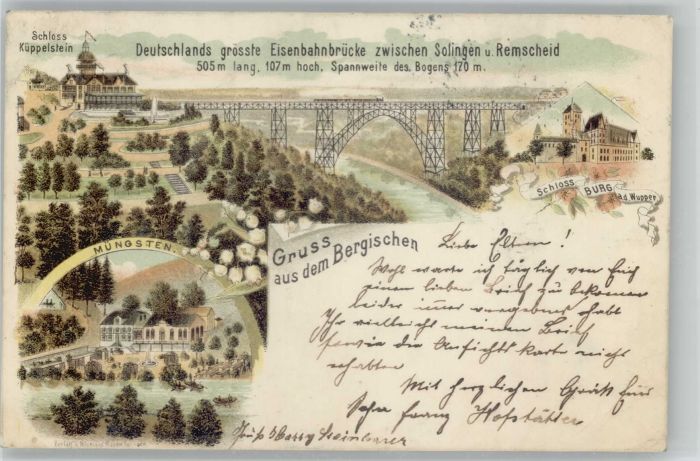 Schloss
Küppelstein
Deutschlands grösste Eisenbahnbrücke zwischen Solingen u. Remscheid
505 m lang, 107 m hoch, Spannweite des Bogens 170 m.
Schloss BURG a.d. Wupper
MÜNGSTEN.
Gruss
aus dem Bergischen
Liebe Eltern!
Wohl warte ich täglich von Euch
einen lieben Brief zu bekommen
leider immer vergebens habt
Ihr vielleicht meinen Brief
sowie die Ansichts Karte nicht
erhalten
Mit herzlichen Gruß Euer
Sohn Franz Hofstätter
Gruß